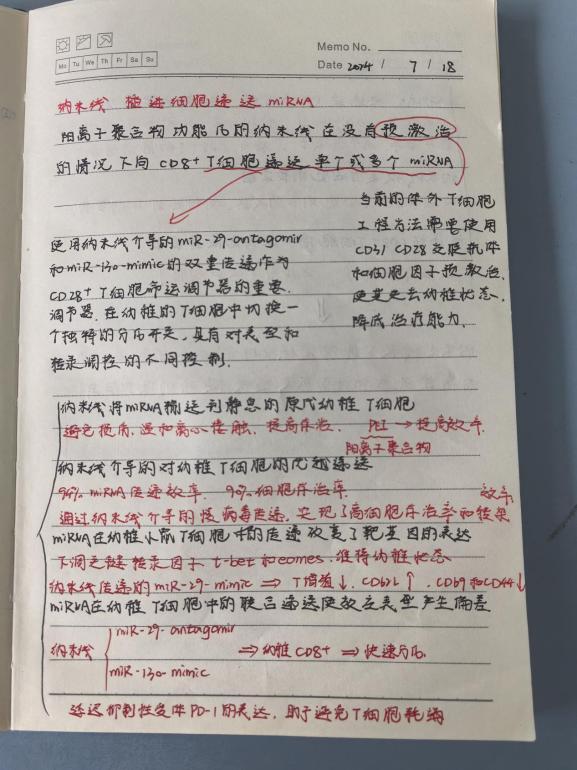 Memo No.
Mo Tu We Th Fr Sa Su
Date 2024 / 7 / 18
纳米线 推进细胞递送 miRNA
阳离子聚合物功能化的纳米线在没有预激活
的情况下向 CD8+ T细胞递送单个或多个 miRNA
当前的体外T细胞
工程方法需要使用
CD3/ CD28 交联抗体
和细胞因子预激活,
使其失去幼稚状态,
降低治疗能力.
使用纳米线介导的 miR-29-antagomir
和miR-130-mimic的双重传递作为
CD28+ T细胞命运调节器的重要
调节器. 在幼稚的T细胞中切换一
个独特的分化开关, 具有对表型和
转录调控的不同控制.
纳米线将miRNA输送到静息的原代幼稚T细胞
避免损伤, 温和离心接触, 提高存活. PEI → 提高效率.
阳离子聚合物
纳米线介导的对幼稚T细胞的优越递送
96% miRNA传递效率. 90%细胞存活率.
通过纳米线介导的慢病毒传递, 实现了高细胞存活率和转录效率
miRNA在幼稚小鼠T细胞中的传递改变了靶基因的表达
下调关键转录因子 t-bet 和eomes. 维持幼稚状态
纳米线传递的 miR-29-mimic ⇒ T增殖↓. CD62L↑. CD69和CD44↓
miRNA在幼稚T细胞中的联合递送使效应表型产生偏差
纳米线
miR-29-antagomir
⇒ 幼稚CD8+ ⇒ 快速分化
miR-130-mimic
延迟抑制性受体PD-1的表达, 助于避免T细胞耗竭